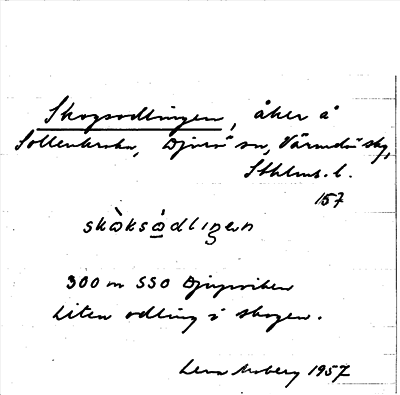 Skogsodlingen, åker å
Sollenkroka, Djurö sn, Värmdö skg,
Sthlms l.
157
skɷ̀ksɷ̀dlıŋɐn
300 m SSO Djupviken
Liten odling i skogen.
Lena Moberg 1957